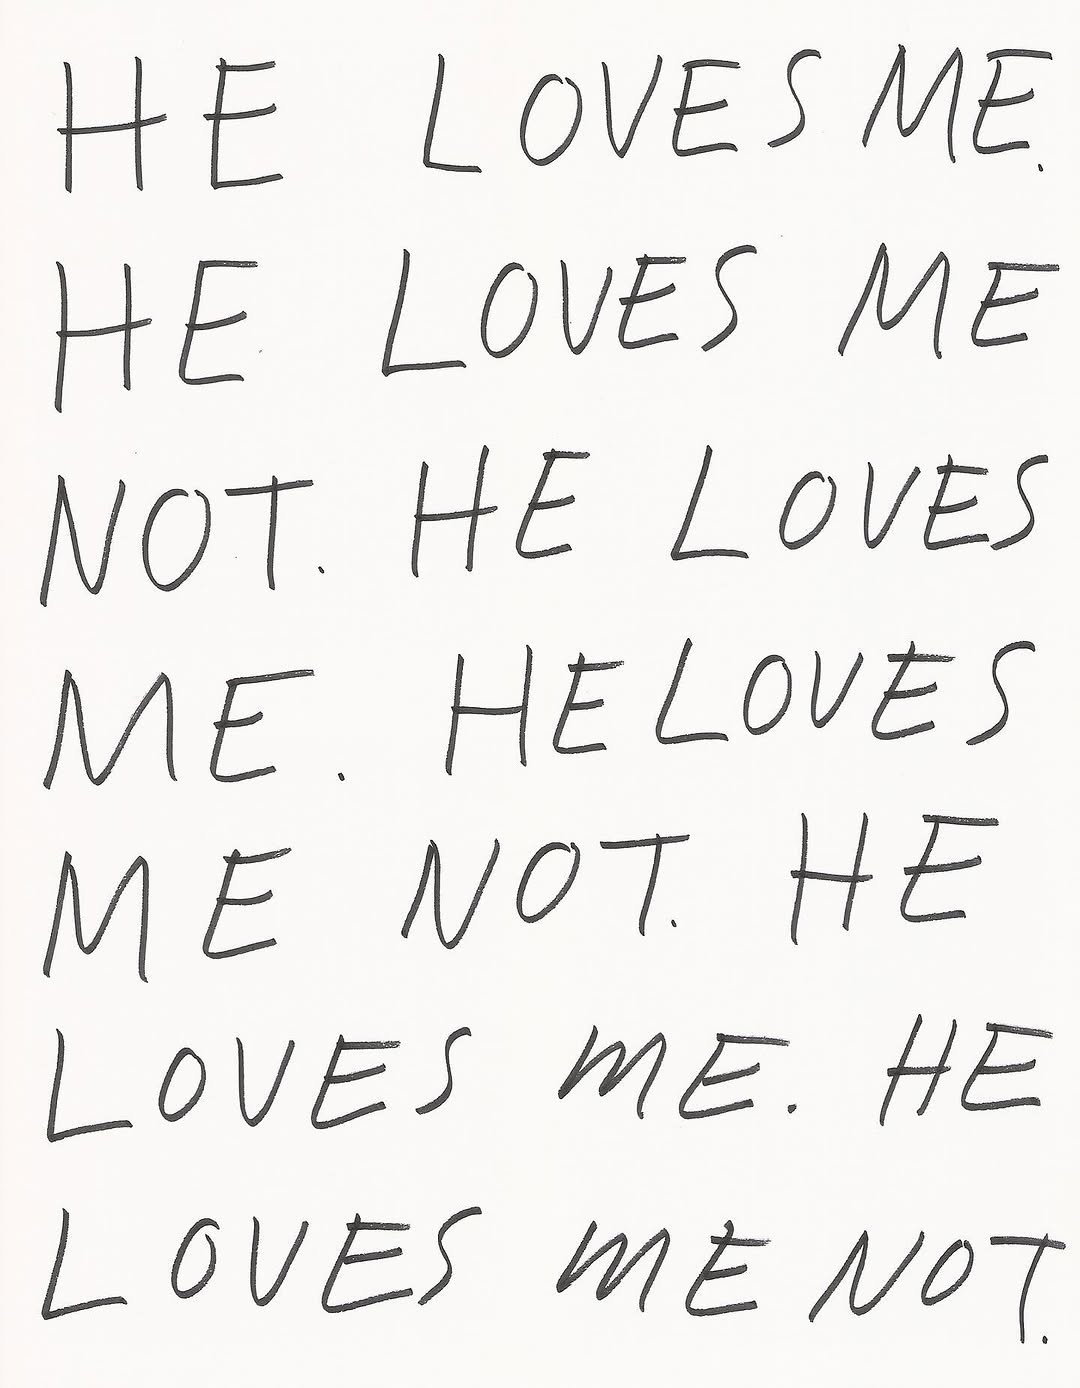 HE LOVES ME.
HE LOVES ME
NOT. HE LOVES
ME. HE LOVES
ME NOT. HE
LOVES ME. HE
LOVES ME NOT.